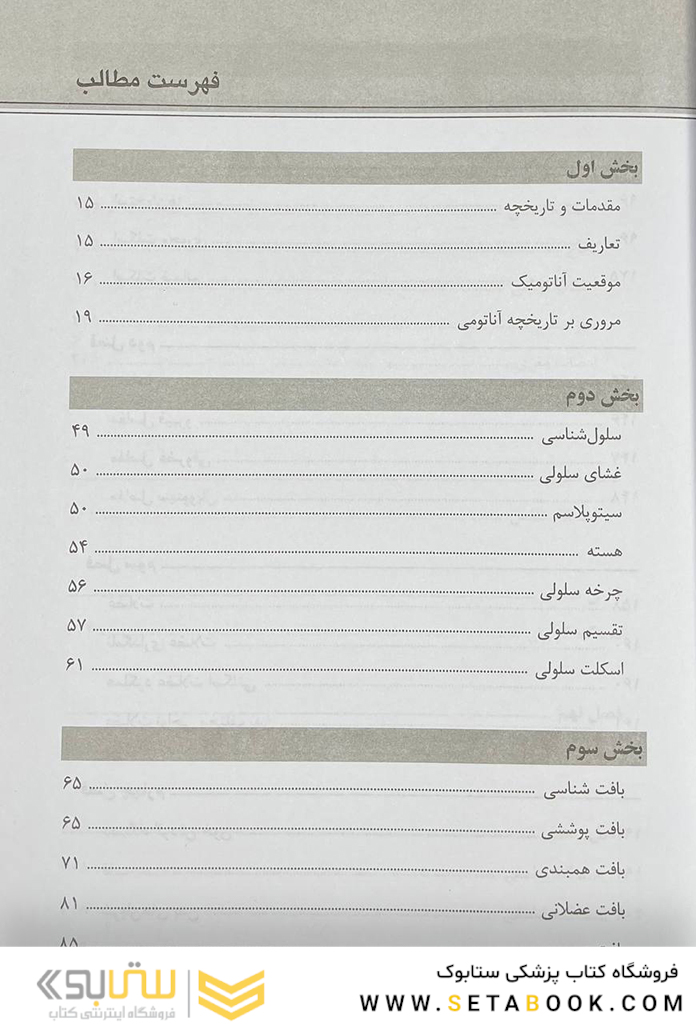 فهرست مطالب
بخش اول
مقدمات و تاریخچه ........ ۱۵
تعاریف ........ ۱۵
موقعیت آناتومیک ........ ۱۶
مروری بر تاریخچه آناتومی ........ ۱۹
بخش دوم
سلول‌شناسی ........ ۴۹
غشای سلولی ........ ۵۰
سیتوپلاسم ........ ۵۰
هسته ........ ۵۴
چرخه سلولی ........ ۵۶
تقسیم سلولی ........ ۵۷
اسکلت سلولی ........ ۶۱
بخش سوم
بافت شناسی ........ ۶۵
بافت پوششی ........ ۶۵
بافت همبندی ........ ۷۱
بافت عضلانی ........ ۸۱
فروشگاه کتاب پزشکی ستابوک
WWW.SETABOOK.COM
ستابوک
فروشگاه اینترنتی کتاب